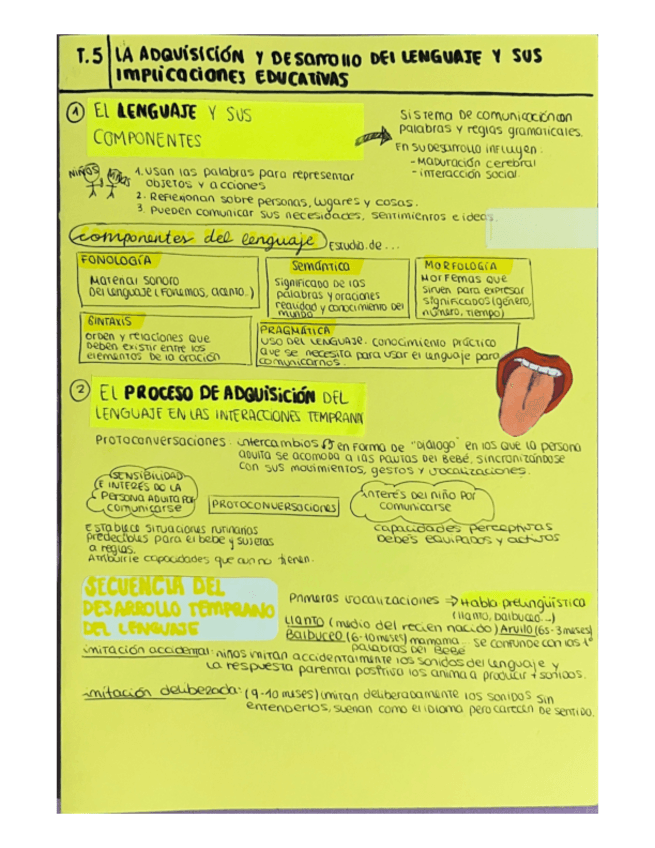 T.5 LA ADQUISICIÓN Y DESARROLLO DEL LENGUAJE Y SUS
IMPLICACIONES EDUCATIVAS
1 EL LENGUAJE Y SUS
COMPONENTES
Sistema de comunicación con
palabras y reglas gramaticales.
En su desarrollo influyen:
- Maduración cerebral
- interacción social
NIÑOS
1. Usan las palabras para representar
objetos y acciones
2. Reflexionan sobre personas, lugares y cosas.
3. Pueden comunicar sus necesidades, sentimientos e ideas.
componentes del lenguaje Estudio de...
FONOLOGÍA
Material sonoro
del lenguaje (Fonemas, acento..)
Semántica
Significado de las
palabras y oraciones
realidad y conocimiento del
mundo
MORFOLOGÍA
Morfemas que
sirven para expresar
significados (género,
número, tiempo)
SINTAXIS
orden y relaciones que
deben existir entre los
elementos de la oración
PRAGMÁTICA
USO DEL LENGUAJE. Conocimiento práctico
que se necesita para usar el lenguaje para
comunicarnos.
2 EL PROCESO DE ADQUISICIÓN DEL
LENGUAJE EN LAS INTERACCIONES TEMPRAN
Protoconversaciones: intercambios en forma de "diálogo" en los que la persona
adulta se acomoda a las pautas del bebé, sincronizándose
con sus movimientos, gestos y vocalizaciones.
SENSIBILIDAD
E INTERÉS DE LA
PERSONA ADULTA POR
COMUNICARSE
PROTOCONVERSACIONES
Interés del niño por
comunicarse
Establece situaciones rutinarias
predecibles para el bebé y sujetas
a reglas.
Atribuirle capacidades que aun no tienen.
capacidades perceptivas
Bebés equipados y activos
SECUENCIA DEL
DESARROLLO TEMPRANO
DEL LENGUAJE
Primeras vocalizaciones ⇒ Habla prelingüística
(llanto, balbuceo...)
Llanto (medio del recien nacido) Arrullo (6s-3meses)
Balbuceo (6-10meses) mamama... se confunde con las 1º
palabras del bebé
imitación accidental: niños imitan accidentalmente los sonidos del lenguaje y
la respuesta parental positiva los anima a producir + sonidos.
imitación deliberada: (9-10 meses) imitan deliberadamente los sonidos sin
entenderlos, suenan como el idioma pero carecen de sentido.